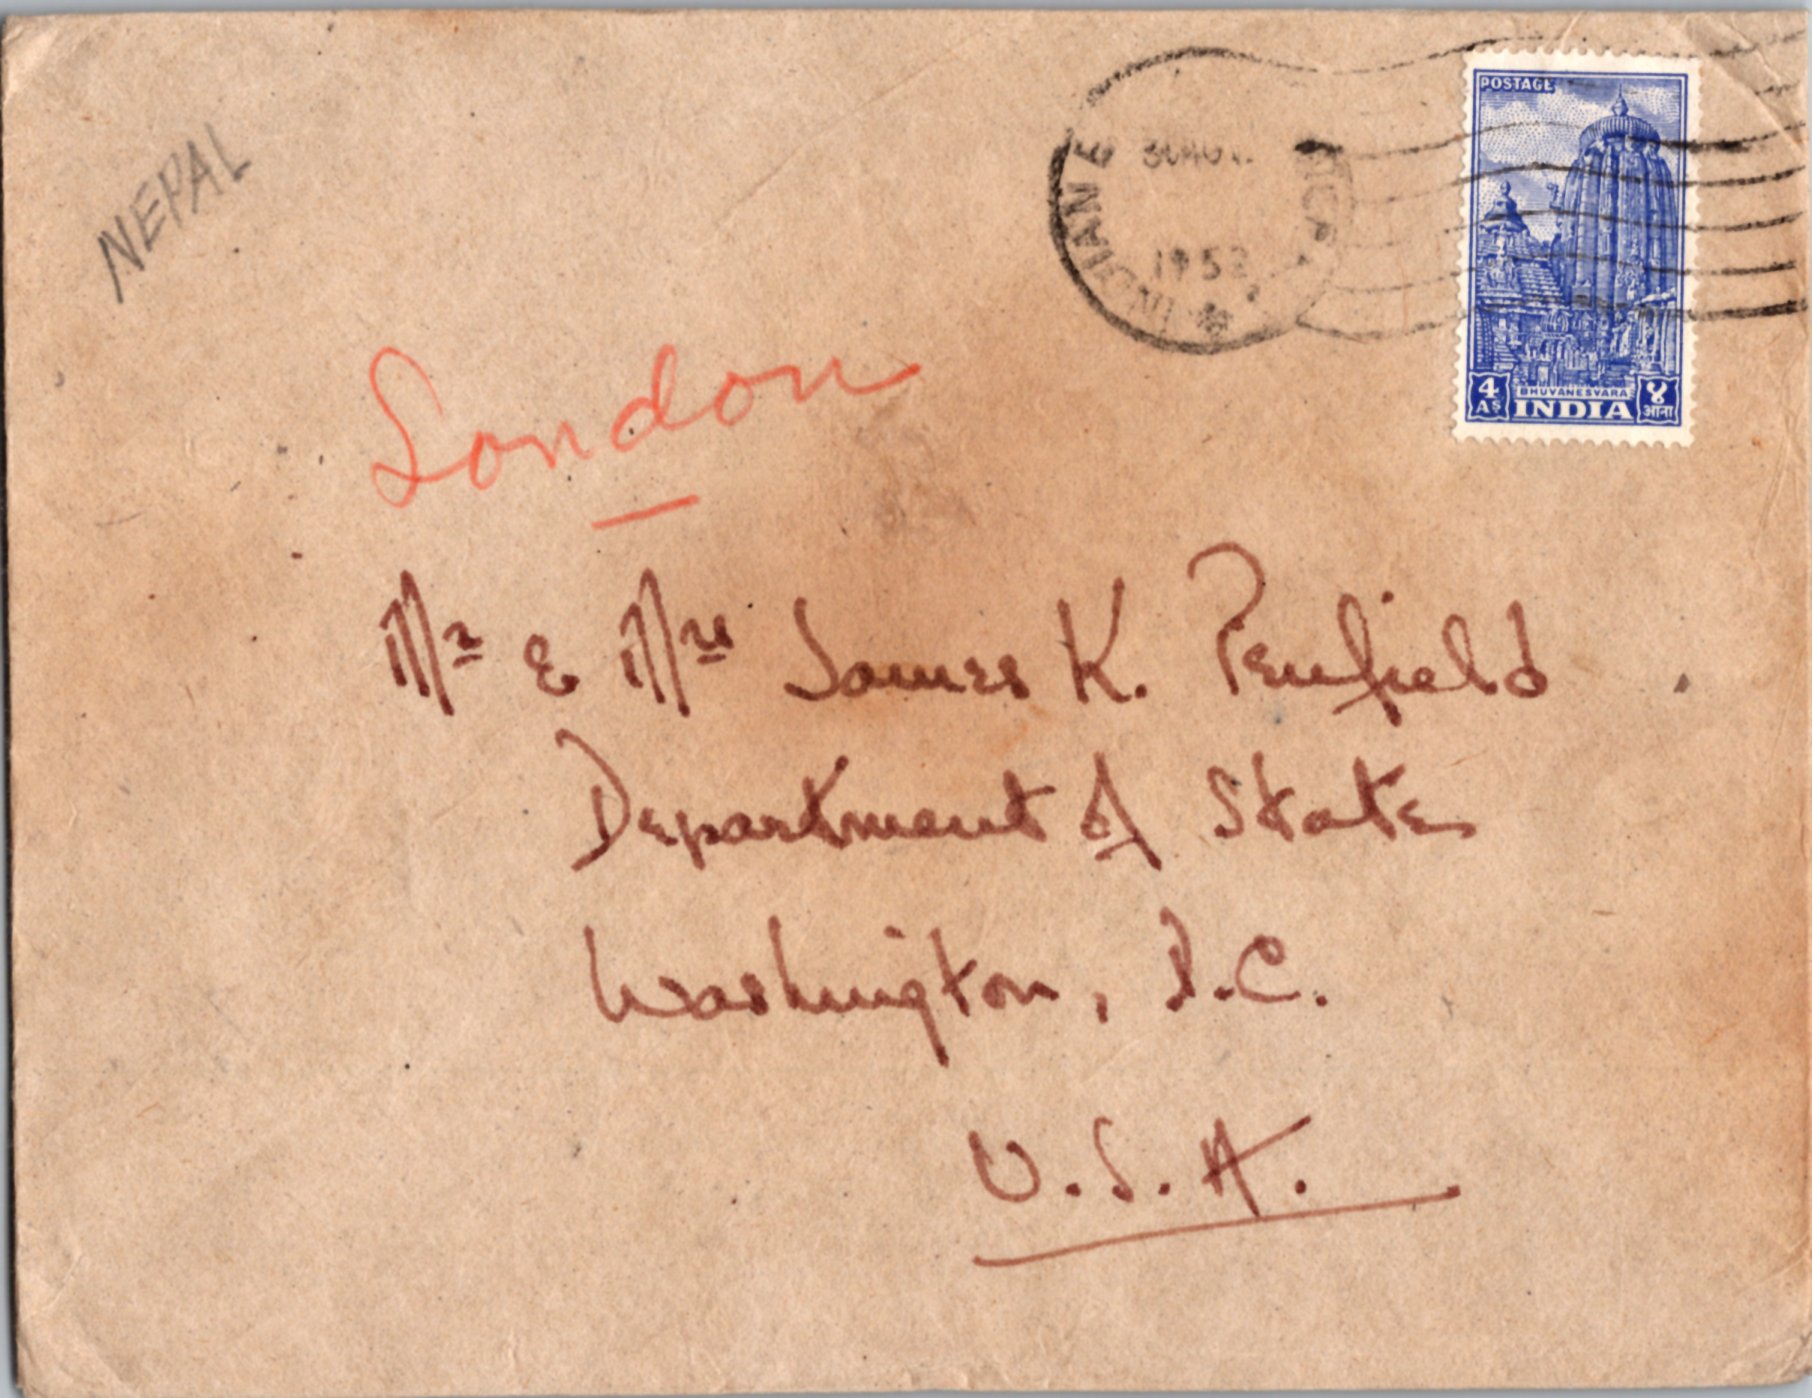 NEPAL
INDIAN E
30 NOV
1952
POSTAGE
4 As
BHUVANESVARA
INDIA
४ आना
London
Mr & Mrs James K. Penfield
Department of State
Washington, D.C.
U.S.A.